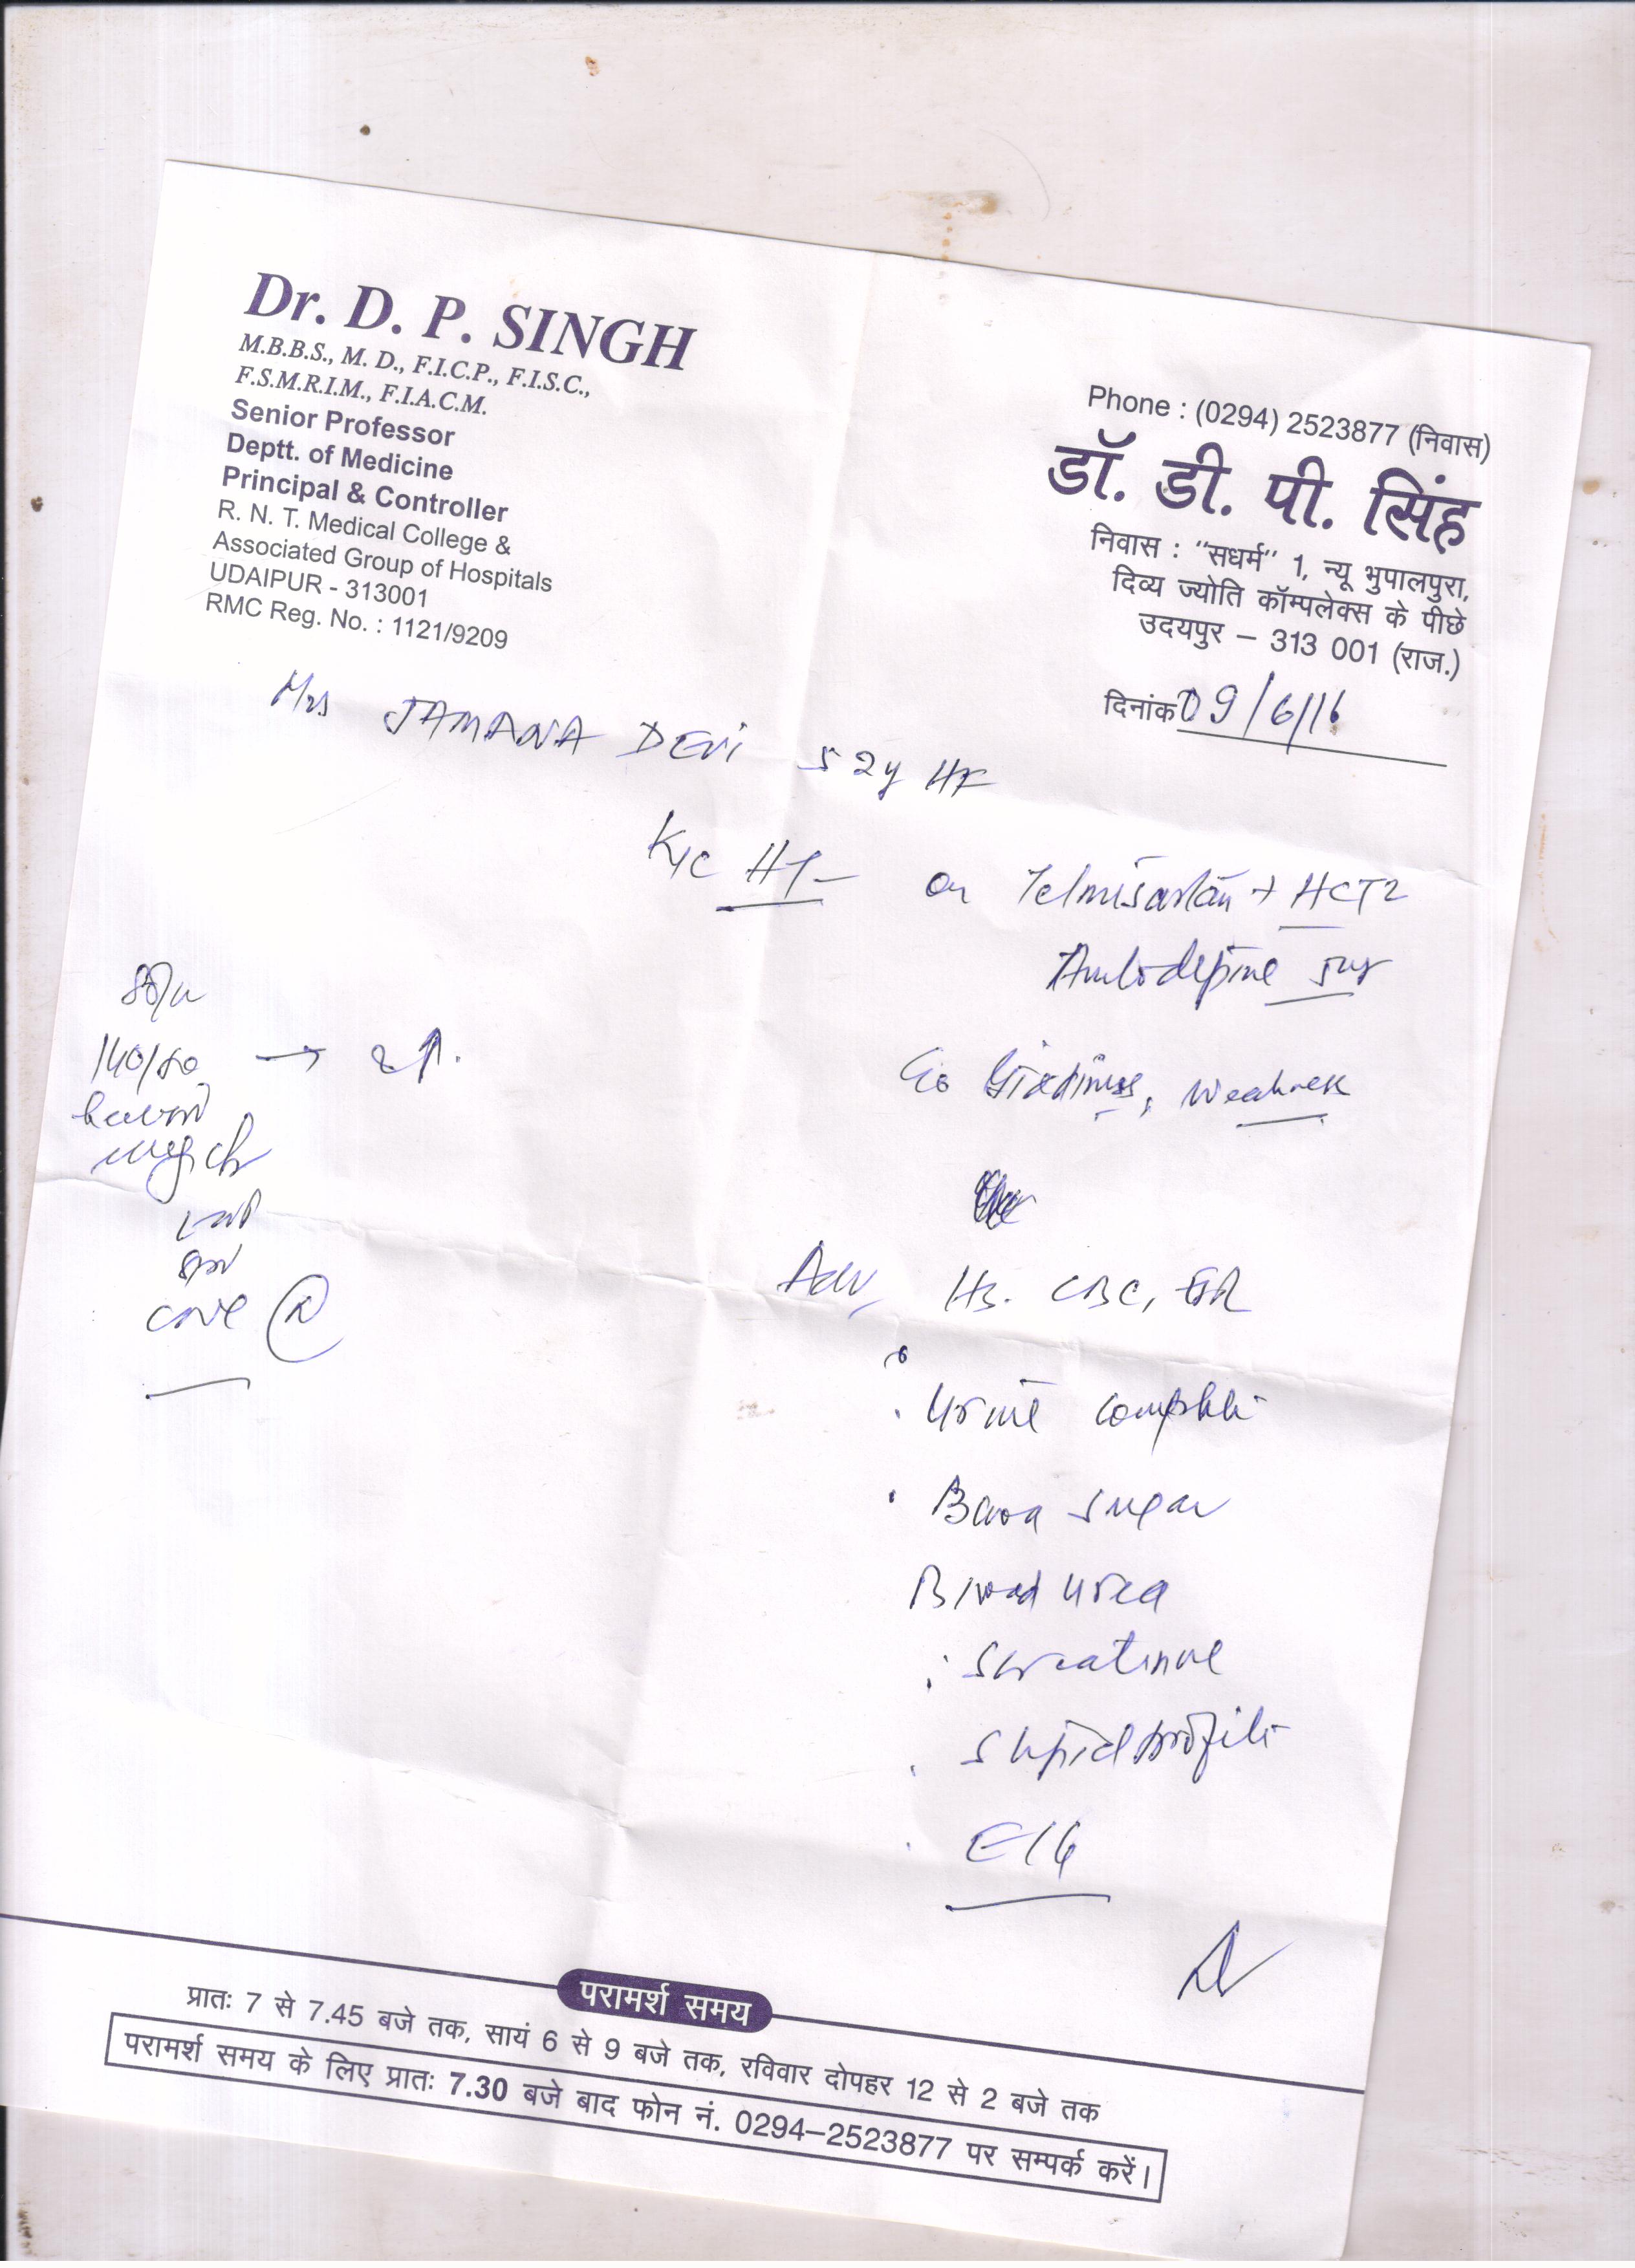 Dr. D. P. SINGH
M.B.B.S., M. D., F.I.C.P., F.I.S.C.,
F.S.M.R.I.M., F.I.A.C.M.
Senior Professor
Deptt. of Medicine
Principal & Controller
R. N. T. Medical College &
Associated Group of Hospitals
UDAIPUR - 313001
RMC Reg. No. : 1121/9209
Phone : (0294) 2523877 (निवास)
डॉ. डी. पी. सिंह
निवास : "सधर्म" 1, न्यू भुपालपुरा,
दिव्य ज्योति कॉम्पलेक्स के पीछे
उदयपुर – 313 001 (राज.)
दिनांक 09/6/16
Mrs JAMANA DEVI 52y HF
K/C HT on Telmisartan + HCTZ
Amlodipine 5mg
80/m
140/80 →
C/o Giddiness, Weakness
Adv Hb. CBC, ESR
Urine complete
Blood sugar
Blood urea
S creatinine
S lipid profile
ECG
परामर्श समय
प्रातः 7 से 7.45 बजे तक, सायं 6 से 9 बजे तक, रविवार दोपहर 12 से 2 बजे तक
परामर्श समय के लिए प्रातः 7.30 बजे बाद फोन नं. 0294–2523877 पर सम्पर्क करें।